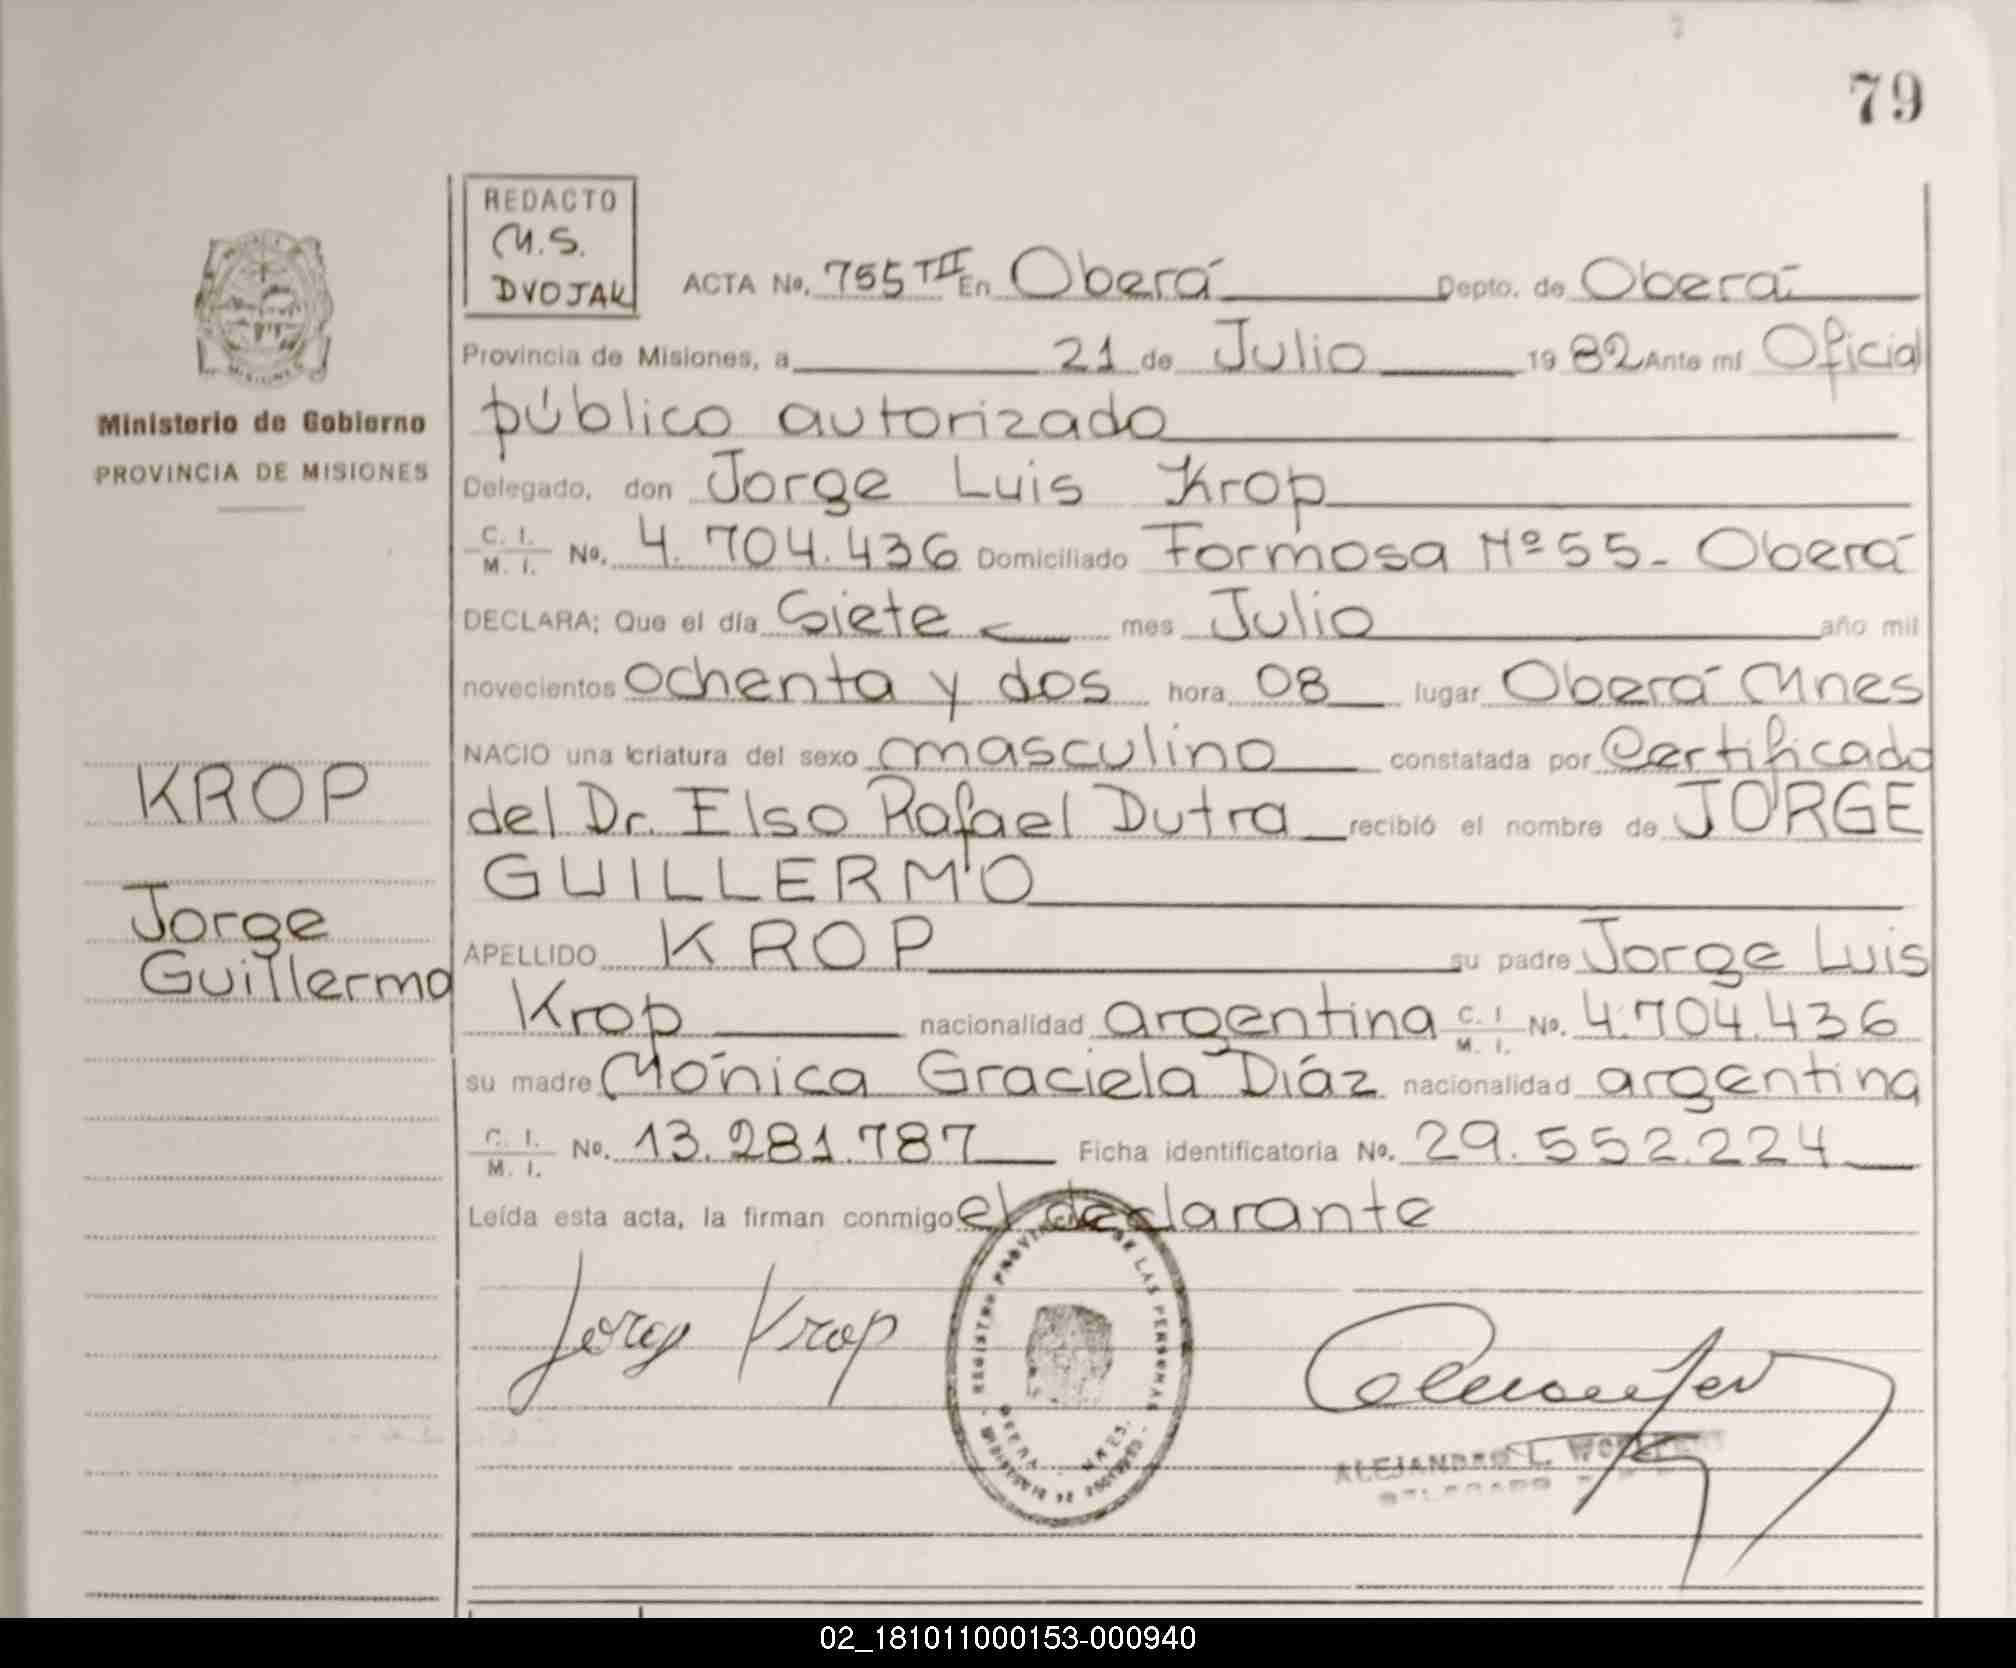 79
REDACTO
M.S.
DVOJAK
ACTA No. 755 TII En Oberá Depto. de Oberá
Provincia de Misiones, a 21 de Julio 19 82 Ante mí Oficial
Ministerio de Gobierno
PROVINCIA DE MISIONES
público autorizado
Delegado, don Jorge Luis Krop
C. I. / M. I. No. 4.704.436 Domiciliado Formosa Nº 55 - Oberá
DECLARA; Que el día Siete mes Julio año mil
novecientos ochenta y dos hora 08 lugar Oberá Mnes
NACIO una criatura del sexo masculino constatada por Certificado
KROP
del Dr. Elso Rafael Dutra recibió el nombre de JORGE
GUILLERMO
Jorge
Guillermo
APELLIDO KROP su padre Jorge Luis
Krop nacionalidad argentina C. I. / M. I. No. 4.704.436
su madre Mónica Graciela Díaz nacionalidad argentina
C. I. / M. I. No. 13.281.787 Ficha identificatoria No. 29.552.224
Leída esta acta, la firman conmigo el declarante
Jorge Krop
REGISTRO PROVINCIAL DE LAS PERSONAS
ALEJANDRO L.
DELEGADO
02_181011000153-000940